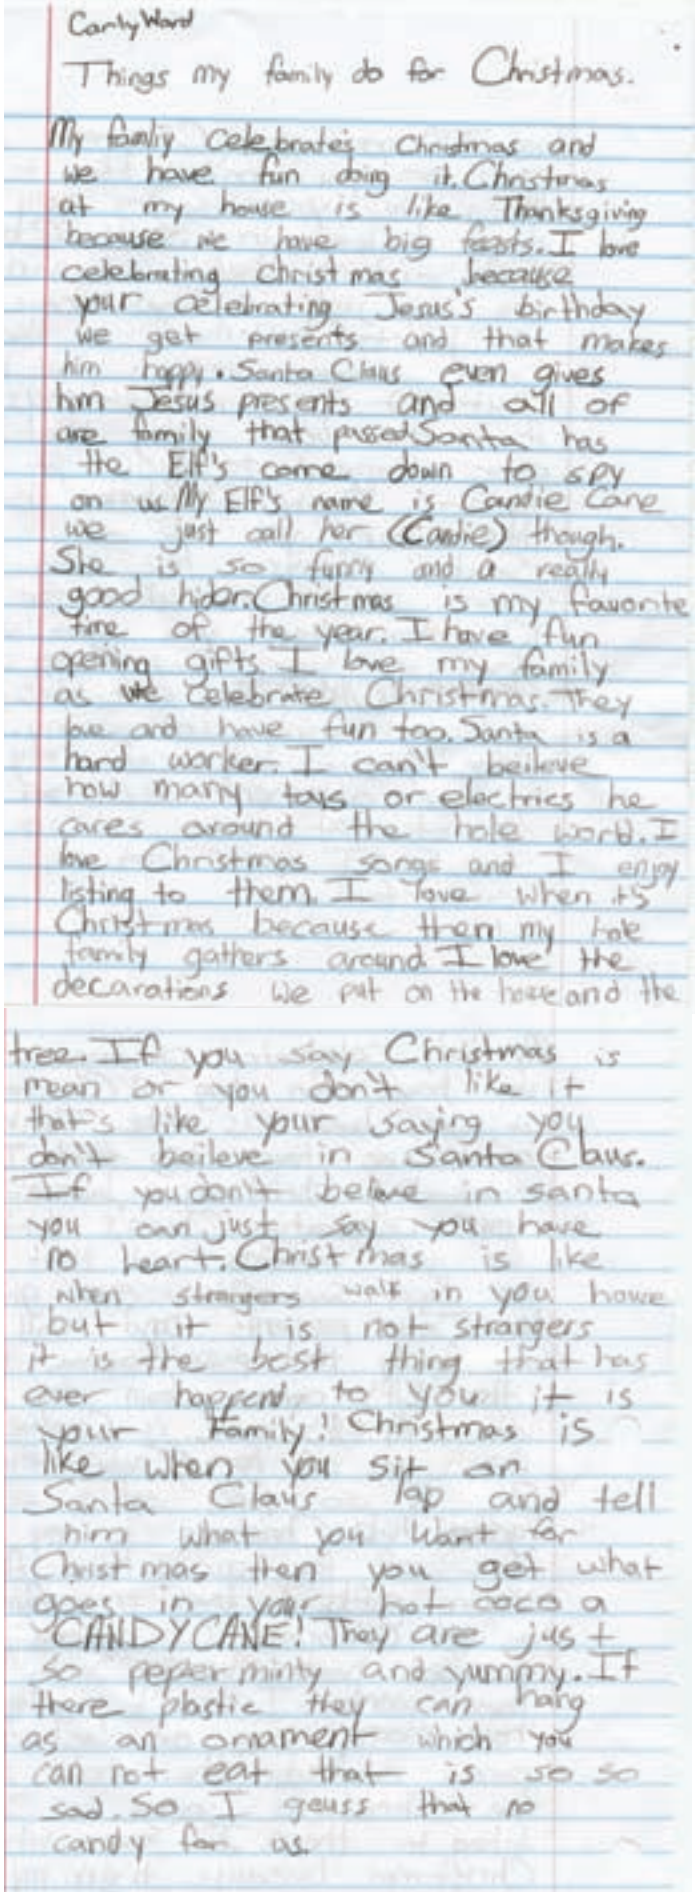 Carly Ward
Things my family do for Christmas.
My famliy celebrate's Christmas and
we have fun doing it. Christmas
at my house is like Thanksgiving
because we have big feasts. I love
celebrating christmas because
your celebrating Jesus's birthday
we get presents and that makes
him happy. Santa Claus even gives
him Jesus presents and all of
are family that passed Santa has
the Elf's come down to spy
on us My Elf's name is Candie Cane
we just call her (Candie) though.
She is so funny and a really
good hider. Christmas is my favorite
time of the year. I have fun
opening gifts I love my family
as we celebrate Christmas. They
love and have fun too. Santa is a
hard worker. I can't beileve
how many toys or electrics he
cares around the hole world. I
love Christmas songs and I enjoy
listing to them. I love when it's
Christmas because then my hole
family gathers around I love the
decarations we put on the house and the
tree. If you say Christmas is
mean or you don't like it
that's like your saying you
don't beileve in Santa Claus.
If you don't beleve in santa
you can just say you have
no heart. Christmas is like
when strangers walk in you house
but it is not strangers
it is the best thing that has
ever happend to you it is
your Family! Christmas is
like when you sit on
Santa Claus lap and tell
him what you want for
Christmas then you get what
goes in your hot coco a
CANDYCANE! They are just
so pepper minty and yummy. If
there plastic they can hang
as an ornament which you
can not eat that is so so
sad. So I geuss that no
candy for us